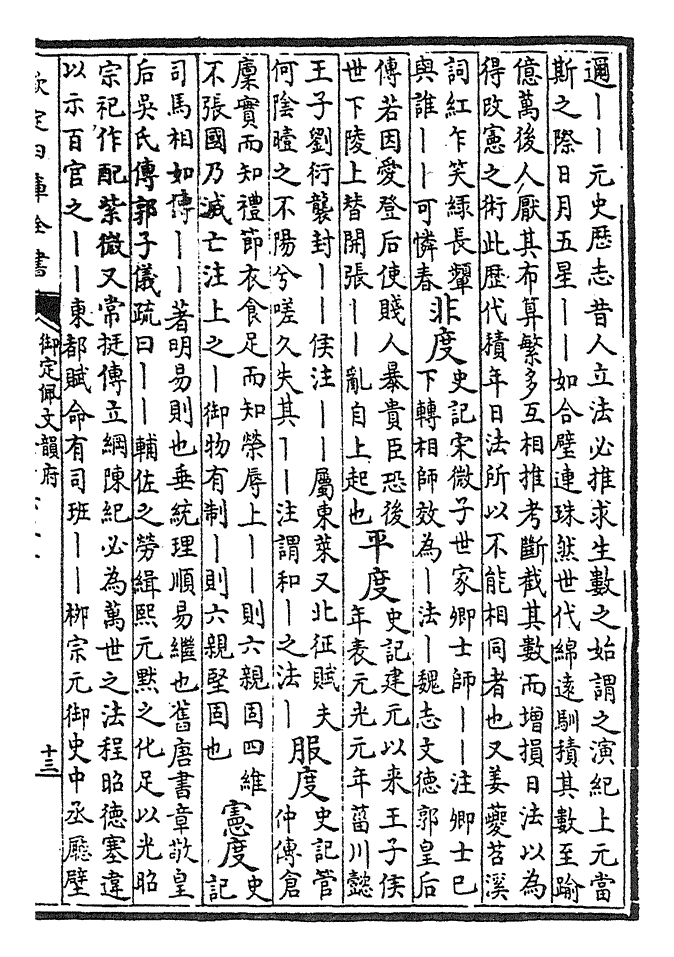 邇丨丨元史歴志昔人立法必推求生數之始謂之演紀上元當
斯之際日月五星丨丨如合璧連珠然世代綿遠馴積其數至踰
億萬後人厭其布算繁多互相推考斷截其數而增損日法以為
得改憲之術此歴代積年日法所以不能相同者也又姜夔苕溪
詞紅乍笑緑長顰
與誰丨丨可憐春
非度
史記宋微子世家卿士師丨丨注卿士已
下轉相師效為丨法丨魏志文德郭皇后
傳若因愛登后使賤人暴貴臣恐後
世下陵上替開張丨丨亂自上起也
平度
史記建元以来王子侯
年表元光元年菑川懿
王子劉衍襲封丨丨侯注丨丨屬東萊又北征賦夫
何陰曀之不陽兮嗟久失其丨丨注謂和丨之法丨
服度
史記管
仲傳倉
廪實而知禮節衣食足而知榮辱上丨丨則六親固四維
不張國乃滅亡注上之丨御物有制丨則六親堅固也
憲度
史
記
司馬相如傳丨丨著明易則也垂統理順易繼也舊唐書章敬皇
后吳氏傳郭子儀疏曰丨丨輔佐之勞緝熙元黙之化足以光昭
宗祀作配紫微又常挺傳立綱陳紀必為萬世之法程昭德塞違
以示百官之丨丨東都賦命有司班丨丨柳宗元御史中丞廳壁
欽定四庫全書
御定佩文韻府
十三